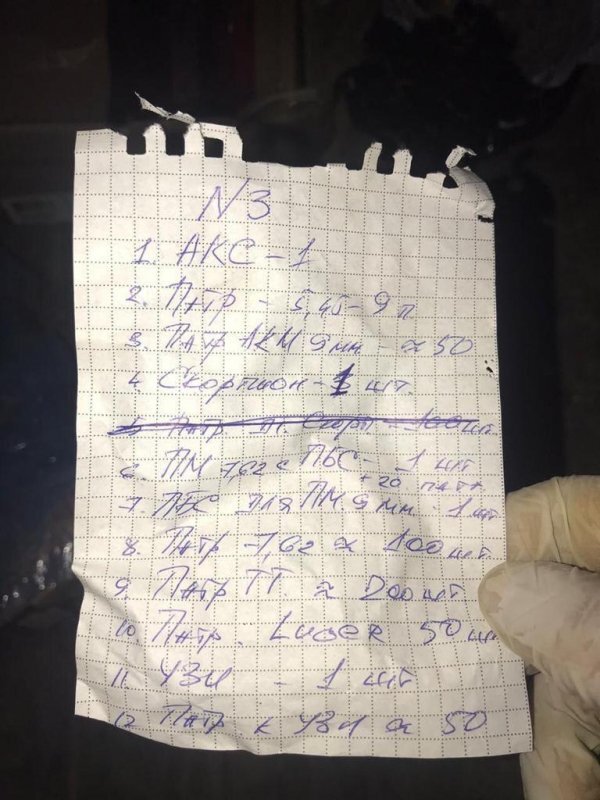 N3
1. АКС - 1
2. Патр - 5,45 - 9 п
3. Патр АКМ 9мм - ≈ 50
4. Скорпион - 1 шт.
5. Патр - 100 шт.
6. ПМ 7,62 с ПБС - 1 шт
+ 20 патр
7. ПБС для ПМ 9мм - 1 шт
8. Патр - 7,62 ≈ 100 шт.
9. Патр ТТ. ≈ 200 шт.
10. Патр. Luger 50 шт
11. УЗИ - 1 шт
12. Патр к УЗИ ≈ 50